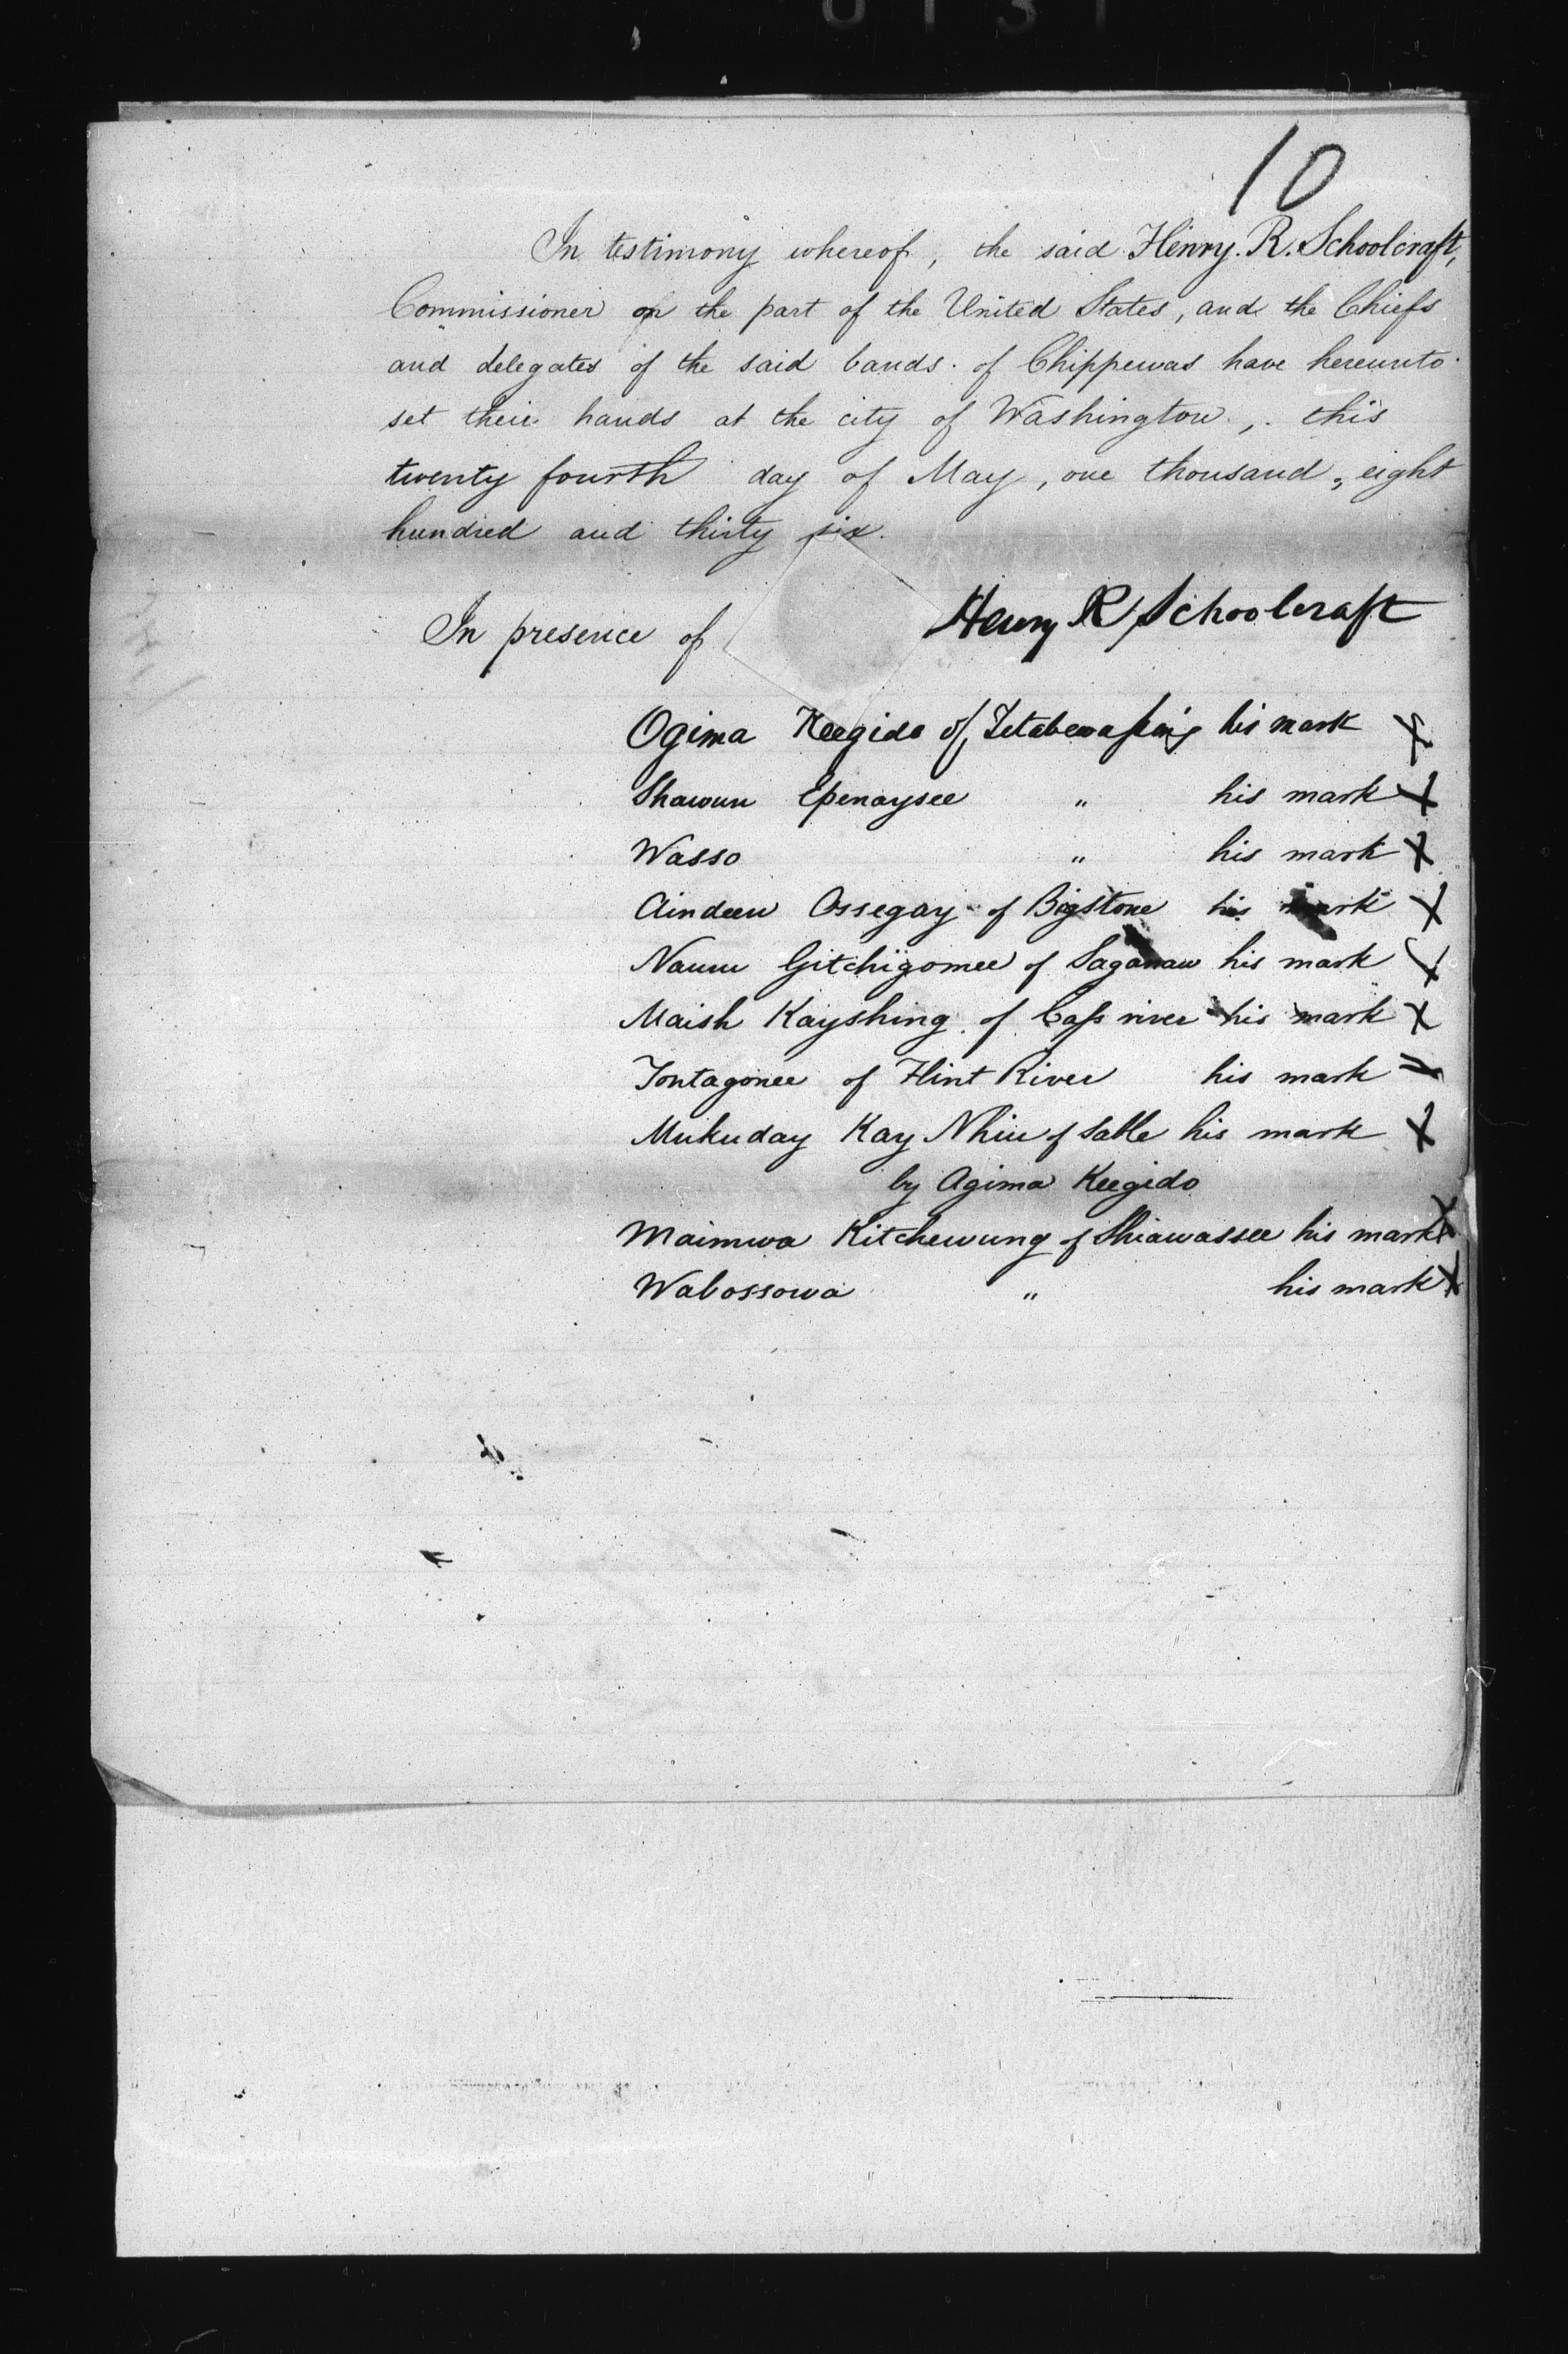 10
In testimony whereof, the said Henry. R. Schoolcraft,
Commissioner on the part of the United States, and the Chiefs
and delegates of the said bands of Chippewas have hereunto
set their hands at the city of Washington, this
twenty fourth day of May, one thousand, eight
hundred and thirty six.
In presence of Henry R Schoolcraft
Ogima Keegido of his mark X
Shawun Epenaysee " his mark X
Wasso " his mark X
Aindeen Ossegay of Bigstone his mark X
Naum Gitchigomee of Saganaw his mark X
Maish Kayshing of Cass river his mark X
Tontagonee of Flint River his mark
Mukuday Kay Nhiu of Sable his mark X
by Agima Keegido
Maimwa Kitchewung of Shiawassee his mark X
Wabossowa " his mark X